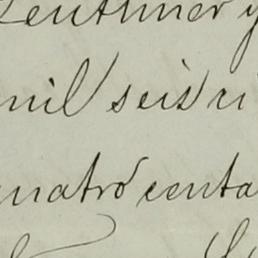 Zenthner y
mil seis ci
uatro centa